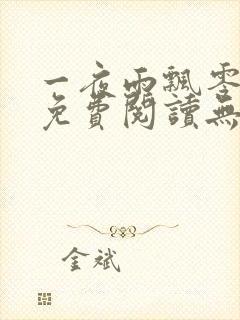 一夜雨飄零
免費閱讀無
金斌